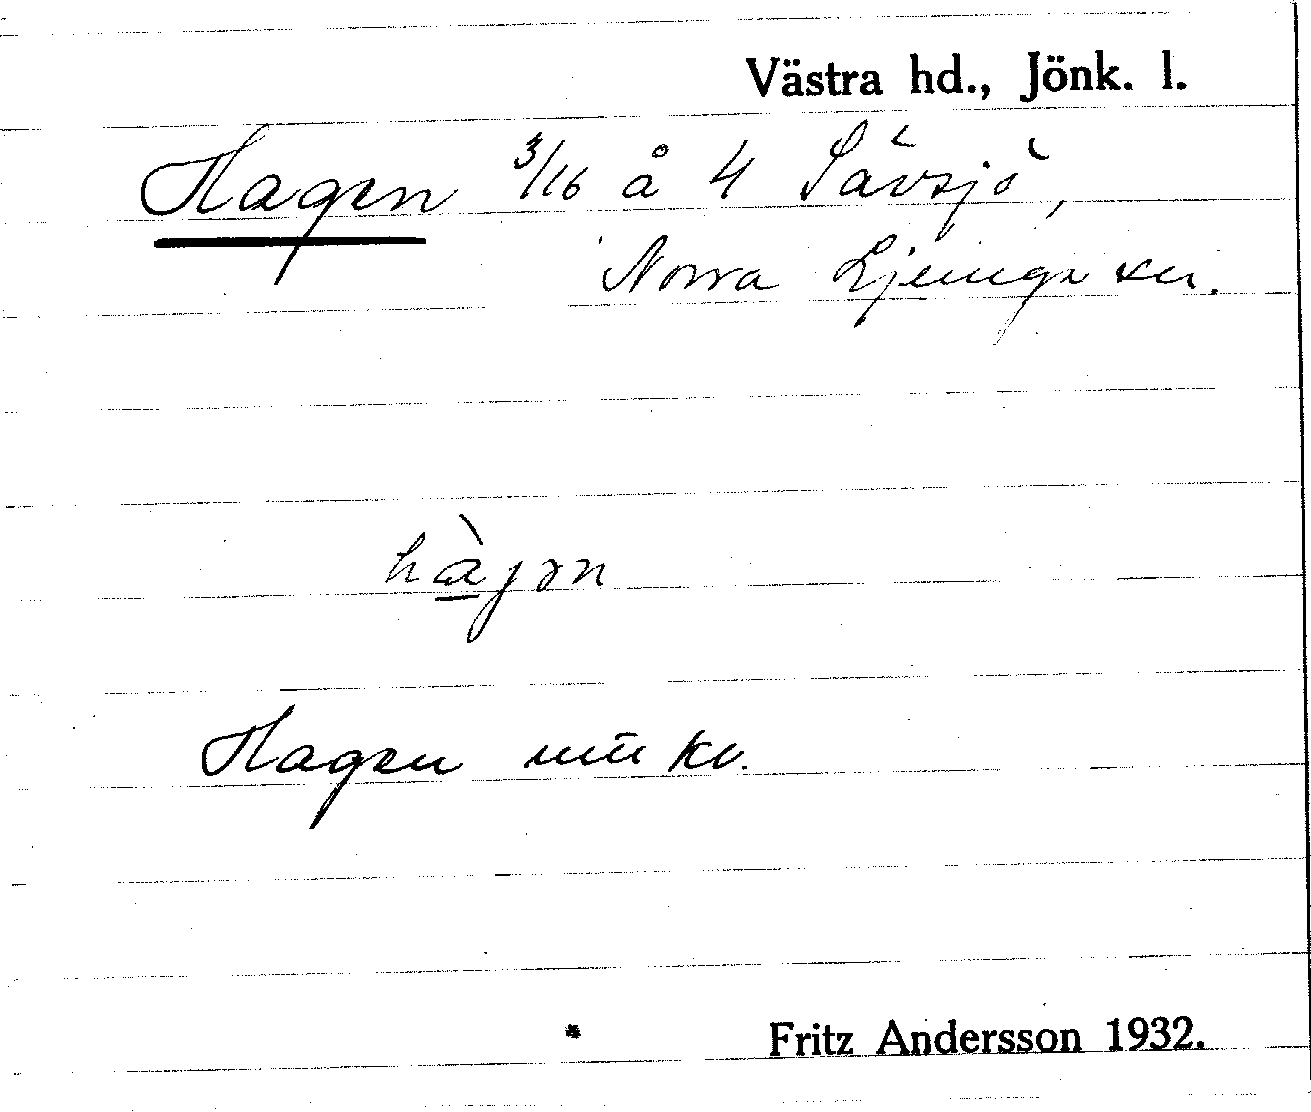 Västra hd., Jönk. l.
Hagen 3/16 å 4 Sävsjö,
Norra Ljunga sn.
hàgən
Hagen
Fritz Andersson 1932.